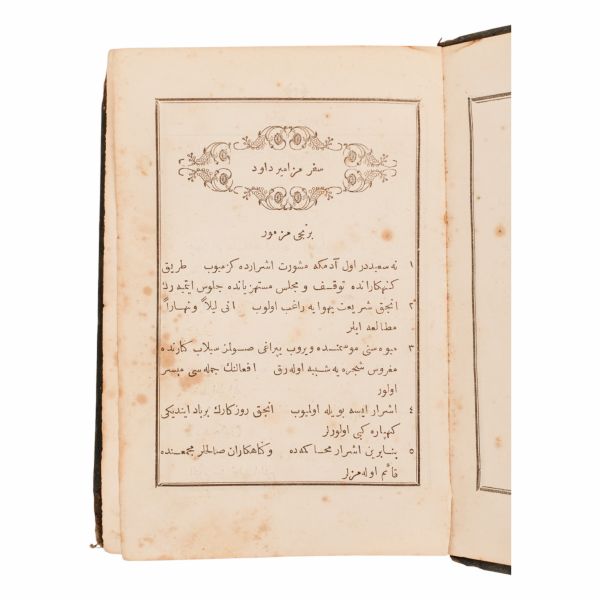 سفر مزامير داود
برنجى مزمور
١ نه سعيددر اول آدمكه مشورت اشرارده كزميوب طريق
كنهكارانده توقف و مجلس مستهزيانده جلوس ايتميه رك
٢ انجق شريعت يهوايه راغب اولوب انى ليلاً و نهاراً
مطالعه ايلر
٣ ميوه سنى موسمنده ويروب يپراغى صولمز سيلاب كنارنده
مغروس شجره يه شبيه اوله رق افعالنك جمله سى ميسر
اولور
٤ اشرار ايسه بويله اولميوب انجق روزكارك برباد ايتديكى
كهپاره كبى اولورلر
٥ بنابرين اشرار محاكمه ده و كناهكاران صالحلر مجمعنده
قائم اوله مزلر